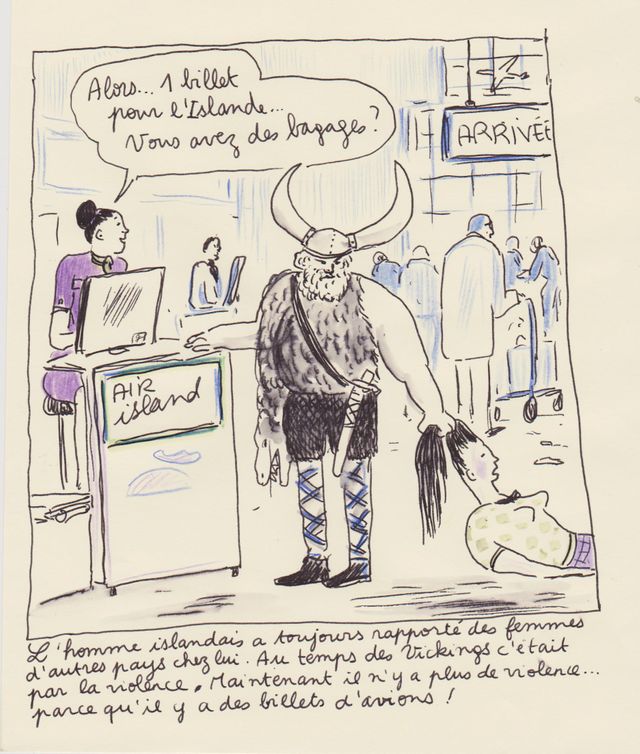 Alors... 1 billet
pour l'Islande...
Vous avez des bagages?
ARRIVÉE
AIR
island
L'homme islandais a toujours rapporté des femmes
d'autres pays chez lui. Au temps des Vickings c'était
par la violence. Maintenant il n'y a plus de violence...
parce qu'il y a des billets d'avions!